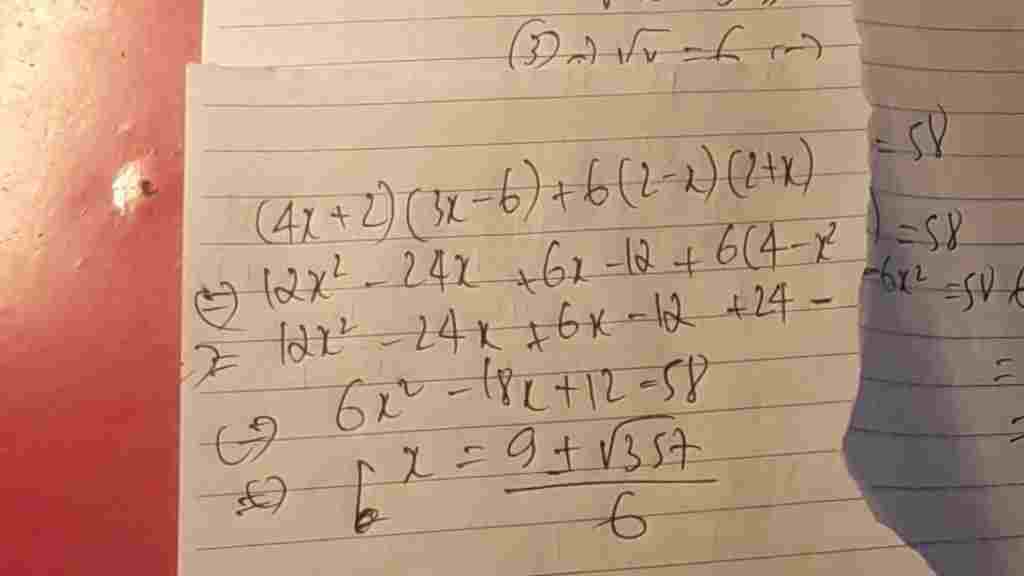 (3) => √x = 6 =>
(4x+2)(3x-6)+6(2-x)(2+x) = 58
(=) 12x² - 24x + 6x - 12 + 6(4-x²) = 58
12x² - 24x + 6x - 12 + 24 - 6x² = 58
(=) 6x² - 18x + 12 = 58
(=) [ x = 9 ± √357 / 6